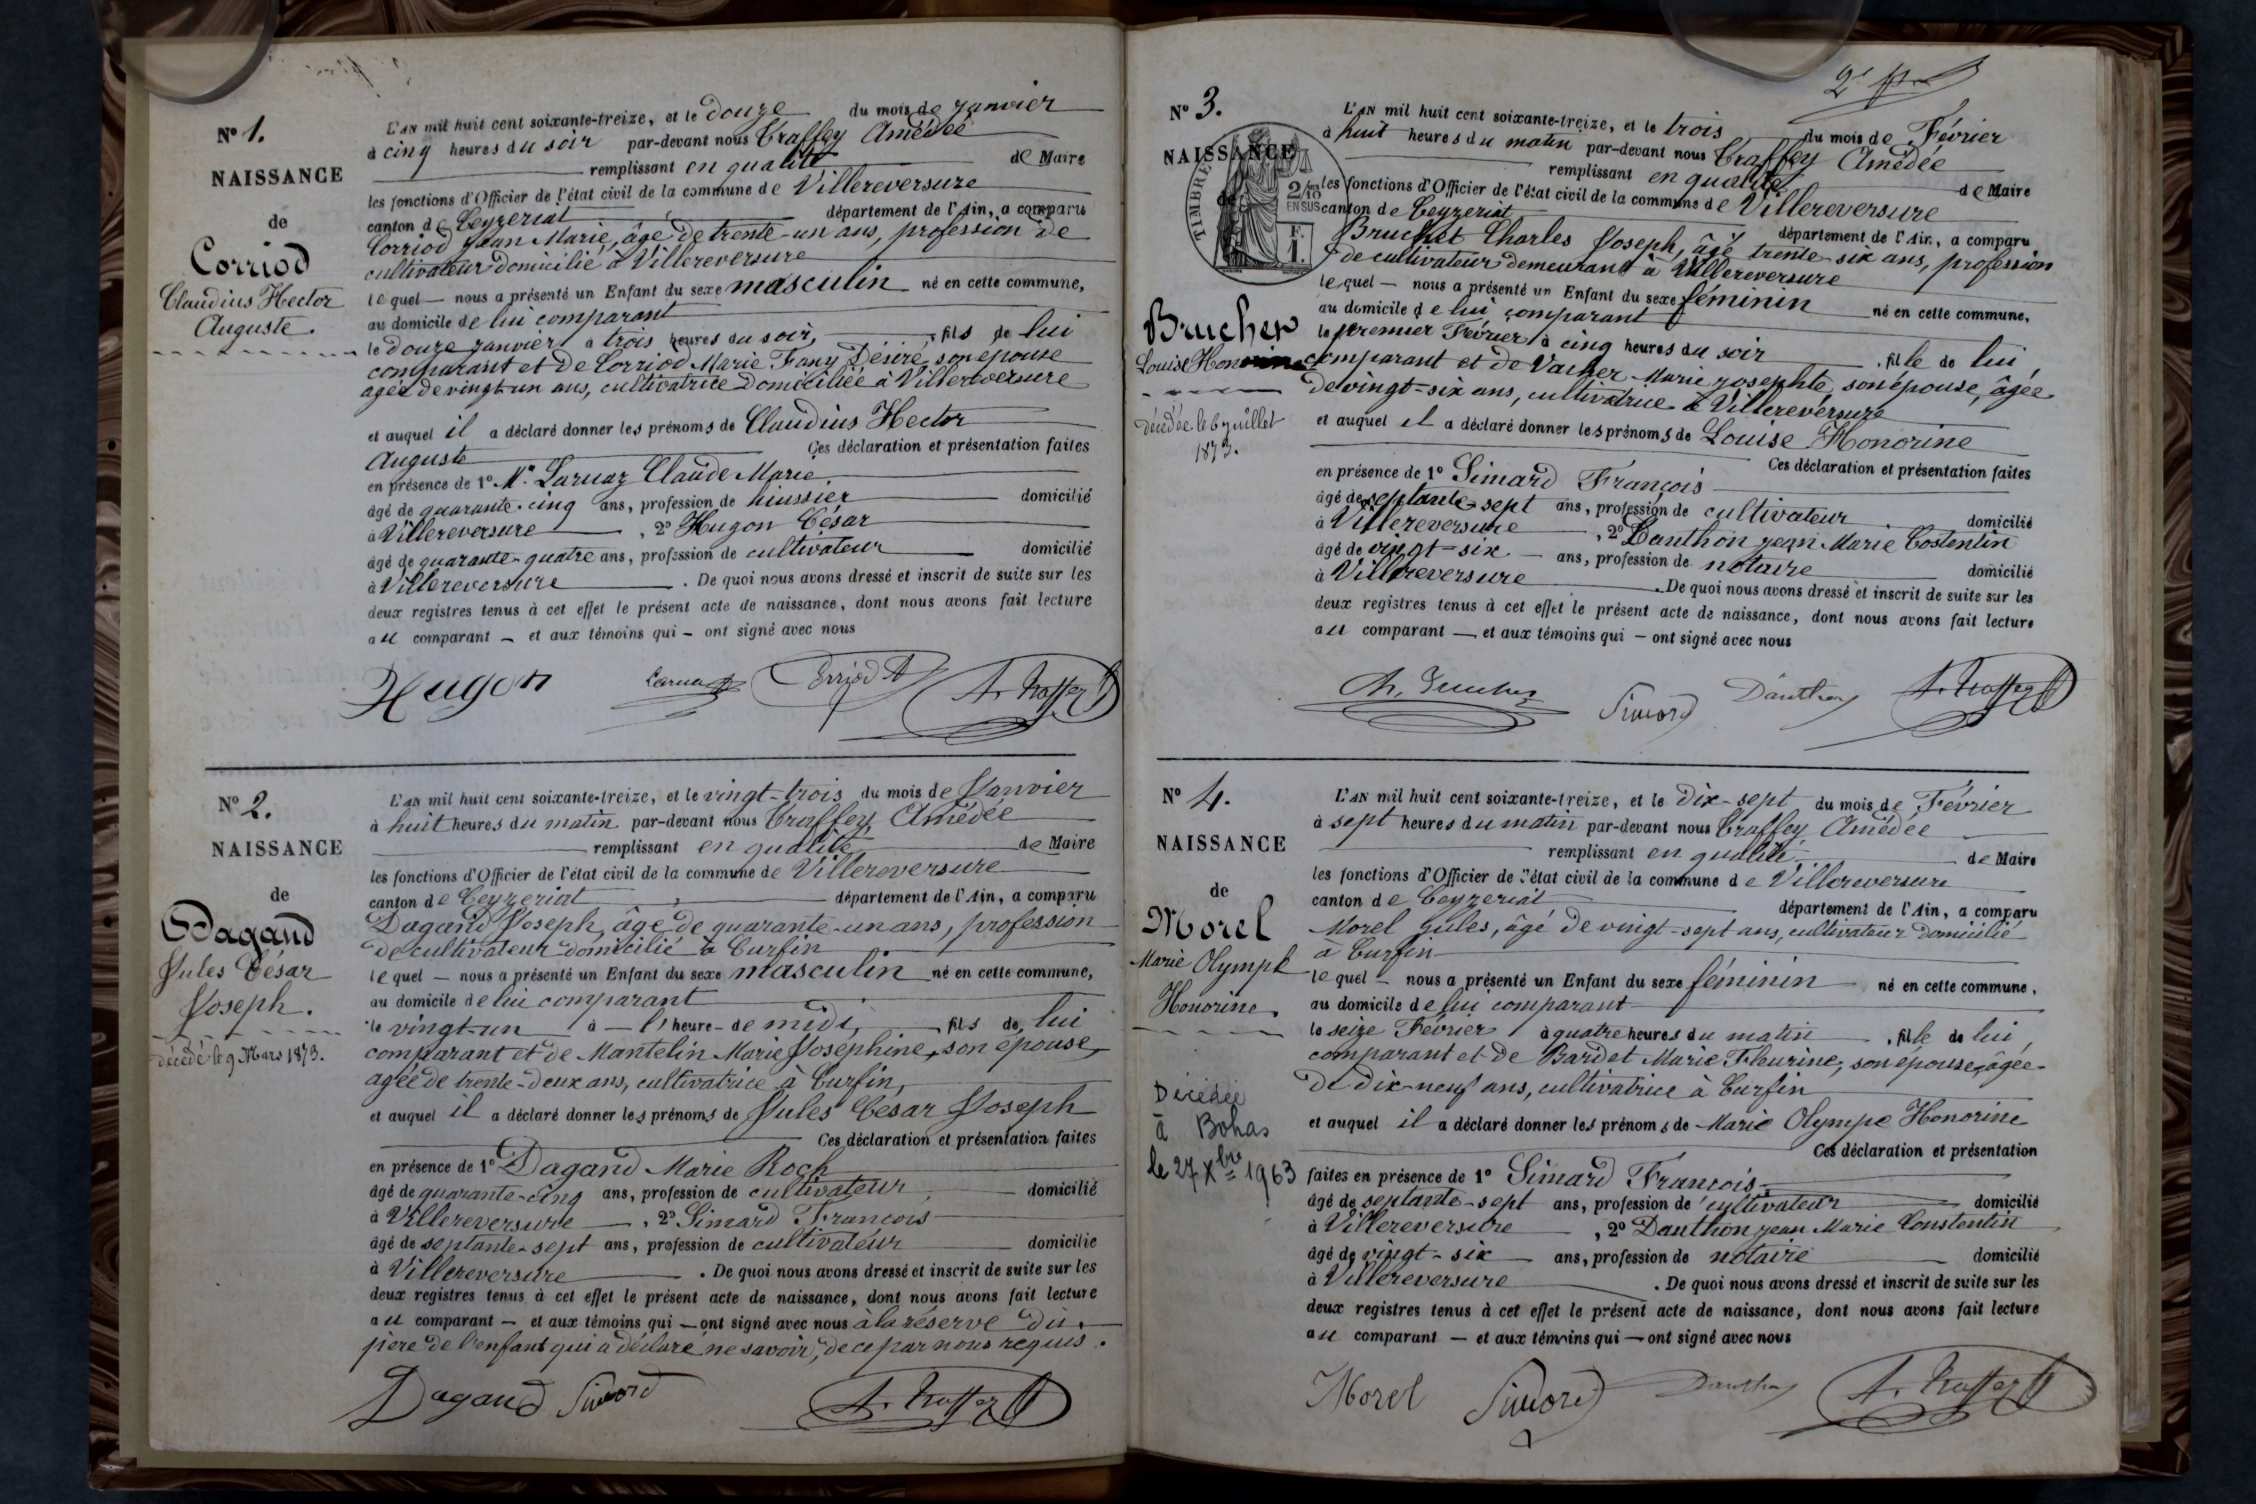 N° 1.
NAISSANCE
de
Corriod
Claudius Hector
Auguste.
L'AN mil huit cent soixante-treize, et le douze du mois de janvier
à cinq heures du soir par-devant nous Traffey Amédée
remplissant en qualité de Maire
les fonctions d'Officier de l'état civil de la commune de Villereversure
canton de Ceyzeriat département de l'Ain, a comparu
Corriod Jean Marie, âgé de trente-un ans, profession de
cultivateur domicilié à Villereversure
lequel — nous a présenté un Enfant du sexe masculin né en cette commune,
au domicile de lui comparant
le douze janvier à trois heures du soir, fils de lui
comparant et de Corriod Marie Fany Désiré, son épouse
agée de vingt-un ans, cultivatrice domiciliée à Villereversure
et auquel il a déclaré donner les prénoms de Claudius Hector
Auguste Ces déclaration et présentation faites
en présence de 1° Mr Laruaz Claude Marie
âgé de quarante-cinq ans, profession de huissier domicilié
à Villereversure, 2° Hugon César
âgé de quarante-quatre ans, profession de cultivateur domicilié
à Villereversure. De quoi nous avons dressé et inscrit de suite sur les
deux registres tenus à cet effet le présent acte de naissance, dont nous avons fait lecture
au comparant — et aux témoins qui — ont signé avec nous
Hugon Laruaz Corriod A. Traffey
N° 2.
NAISSANCE
de
Dagand
Jules César
Joseph.
décédé le 9 Mars 1873.
L'AN mil huit cent soixante-treize, et le vingt-trois du mois de Janvier
à huit heures du matin par-devant nous Traffey Amédée
remplissant en qualité de Maire
les fonctions d'Officier de l'état civil de la commune de Villereversure
canton de Ceyzeriat département de l'Ain, a comparu
Dagand Joseph, âgé de quarante-un ans, profession
de cultivateur domicilié à Curfin
lequel — nous a présenté un Enfant du sexe masculin né en cette commune,
au domicile de lui comparant
le vingt-un à — l'heure — de midi, fils de lui
comparant et de Mantelin Marie Joséphine, son épouse,
agée de trente-deux ans, cultivatrice à Curfin,
et auquel il a déclaré donner les prénoms de Jules César Joseph
Ces déclaration et présentation faites
en présence de 1° Dagand Marie Roch
âgé de quarante-cinq ans, profession de cultivateur, domicilié
à Villereversure, 2° Simard François
âgé de septante-sept ans, profession de cultivateur domicilié
à Villereversure. De quoi nous avons dressé et inscrit de suite sur les
deux registres tenus à cet effet le présent acte de naissance, dont nous avons fait lecture
au comparant — et aux témoins qui — ont signé avec nous à la réserve du
père de l'enfant qui a déclaré ne savoir, de ce par nous requis.
Dagand Simard A. Traffey
N° 3.
NAISSANCE
de
TIMBRE
2/10
EN SUS
F.
1.
Brucher
Louise Honorine
décédée le 6 juillet
1873.
L'AN mil huit cent soixante-treize, et le trois du mois de Février
à huit heures du matin par-devant nous Traffey Amédée
remplissant en qualité de Maire
les fonctions d'Officier de l'état civil de la commune de Villereversure
canton de Ceyzeriat département de l'Ain, a comparu
Bruchet Charles Joseph, âgé trente-six ans, profession
de cultivateur demeurant à Villereversure
lequel — nous a présenté un Enfant du sexe féminin né en cette commune,
au domicile de lui comparant
le premier Février à cinq heures du soir, fille de lui
comparant et de Vacher Marie Josephte, son épouse, âgée
de vingt-six ans, cultivatrice à Villereversure
et auquel il a déclaré donner les prénoms de Louise Honorine
Ces déclaration et présentation faites
en présence de 1° Simard François
âgé de septante-sept ans, profession de cultivateur domicilié
à Villereversure, 2° Danthon Jean Marie Costentin
âgé de vingt-six — ans, profession de notaire domicilié
à Villereversure. De quoi nous avons dressé et inscrit de suite sur les
deux registres tenus à cet effet le présent acte de naissance, dont nous avons fait lecture
au comparant — et aux témoins qui — ont signé avec nous
Ch. Brucher Simard Danthon A. Traffey
N° 4.
NAISSANCE
de
Morel
Marie Olympe
Honorine.
Décédée
à Bohas
le 27 Xbre 1963
L'AN mil huit cent soixante-treize, et le dix-sept du mois de Février
à sept heures du matin par-devant nous Traffey Amédée
remplissant en qualité de Maire
les fonctions d'Officier de l'état civil de la commune de Villereversure
canton de Ceyzeriat département de l'Ain, a comparu
Morel Jules, âgé de vingt-sept ans, cultivateur domicilié
à Curfin
lequel — nous a présenté un Enfant du sexe féminin né en cette commune,
au domicile de lui comparant
le seize Février à quatre heures du matin, fille de lui
comparant et de Bardet Marie Fleurine, son épouse, âgée
de dix-neuf ans, cultivatrice à Curfin
et auquel il a déclaré donner les prénoms de Marie Olympe Honorine
Ces déclaration et présentation
faites en présence de 1° Simard François
âgé de septante-sept ans, profession de cultivateur domicilié
à Villereversure, 2° Danthon Jean Marie Constentin
âgé de vingt-six ans, profession de notaire domicilié
à Villereversure. De quoi nous avons dressé et inscrit de suite sur les
deux registres tenus à cet effet le présent acte de naissance, dont nous avons fait lecture
au comparant — et aux témoins qui — ont signé avec nous
Morel Simard Danthon A. Traffey